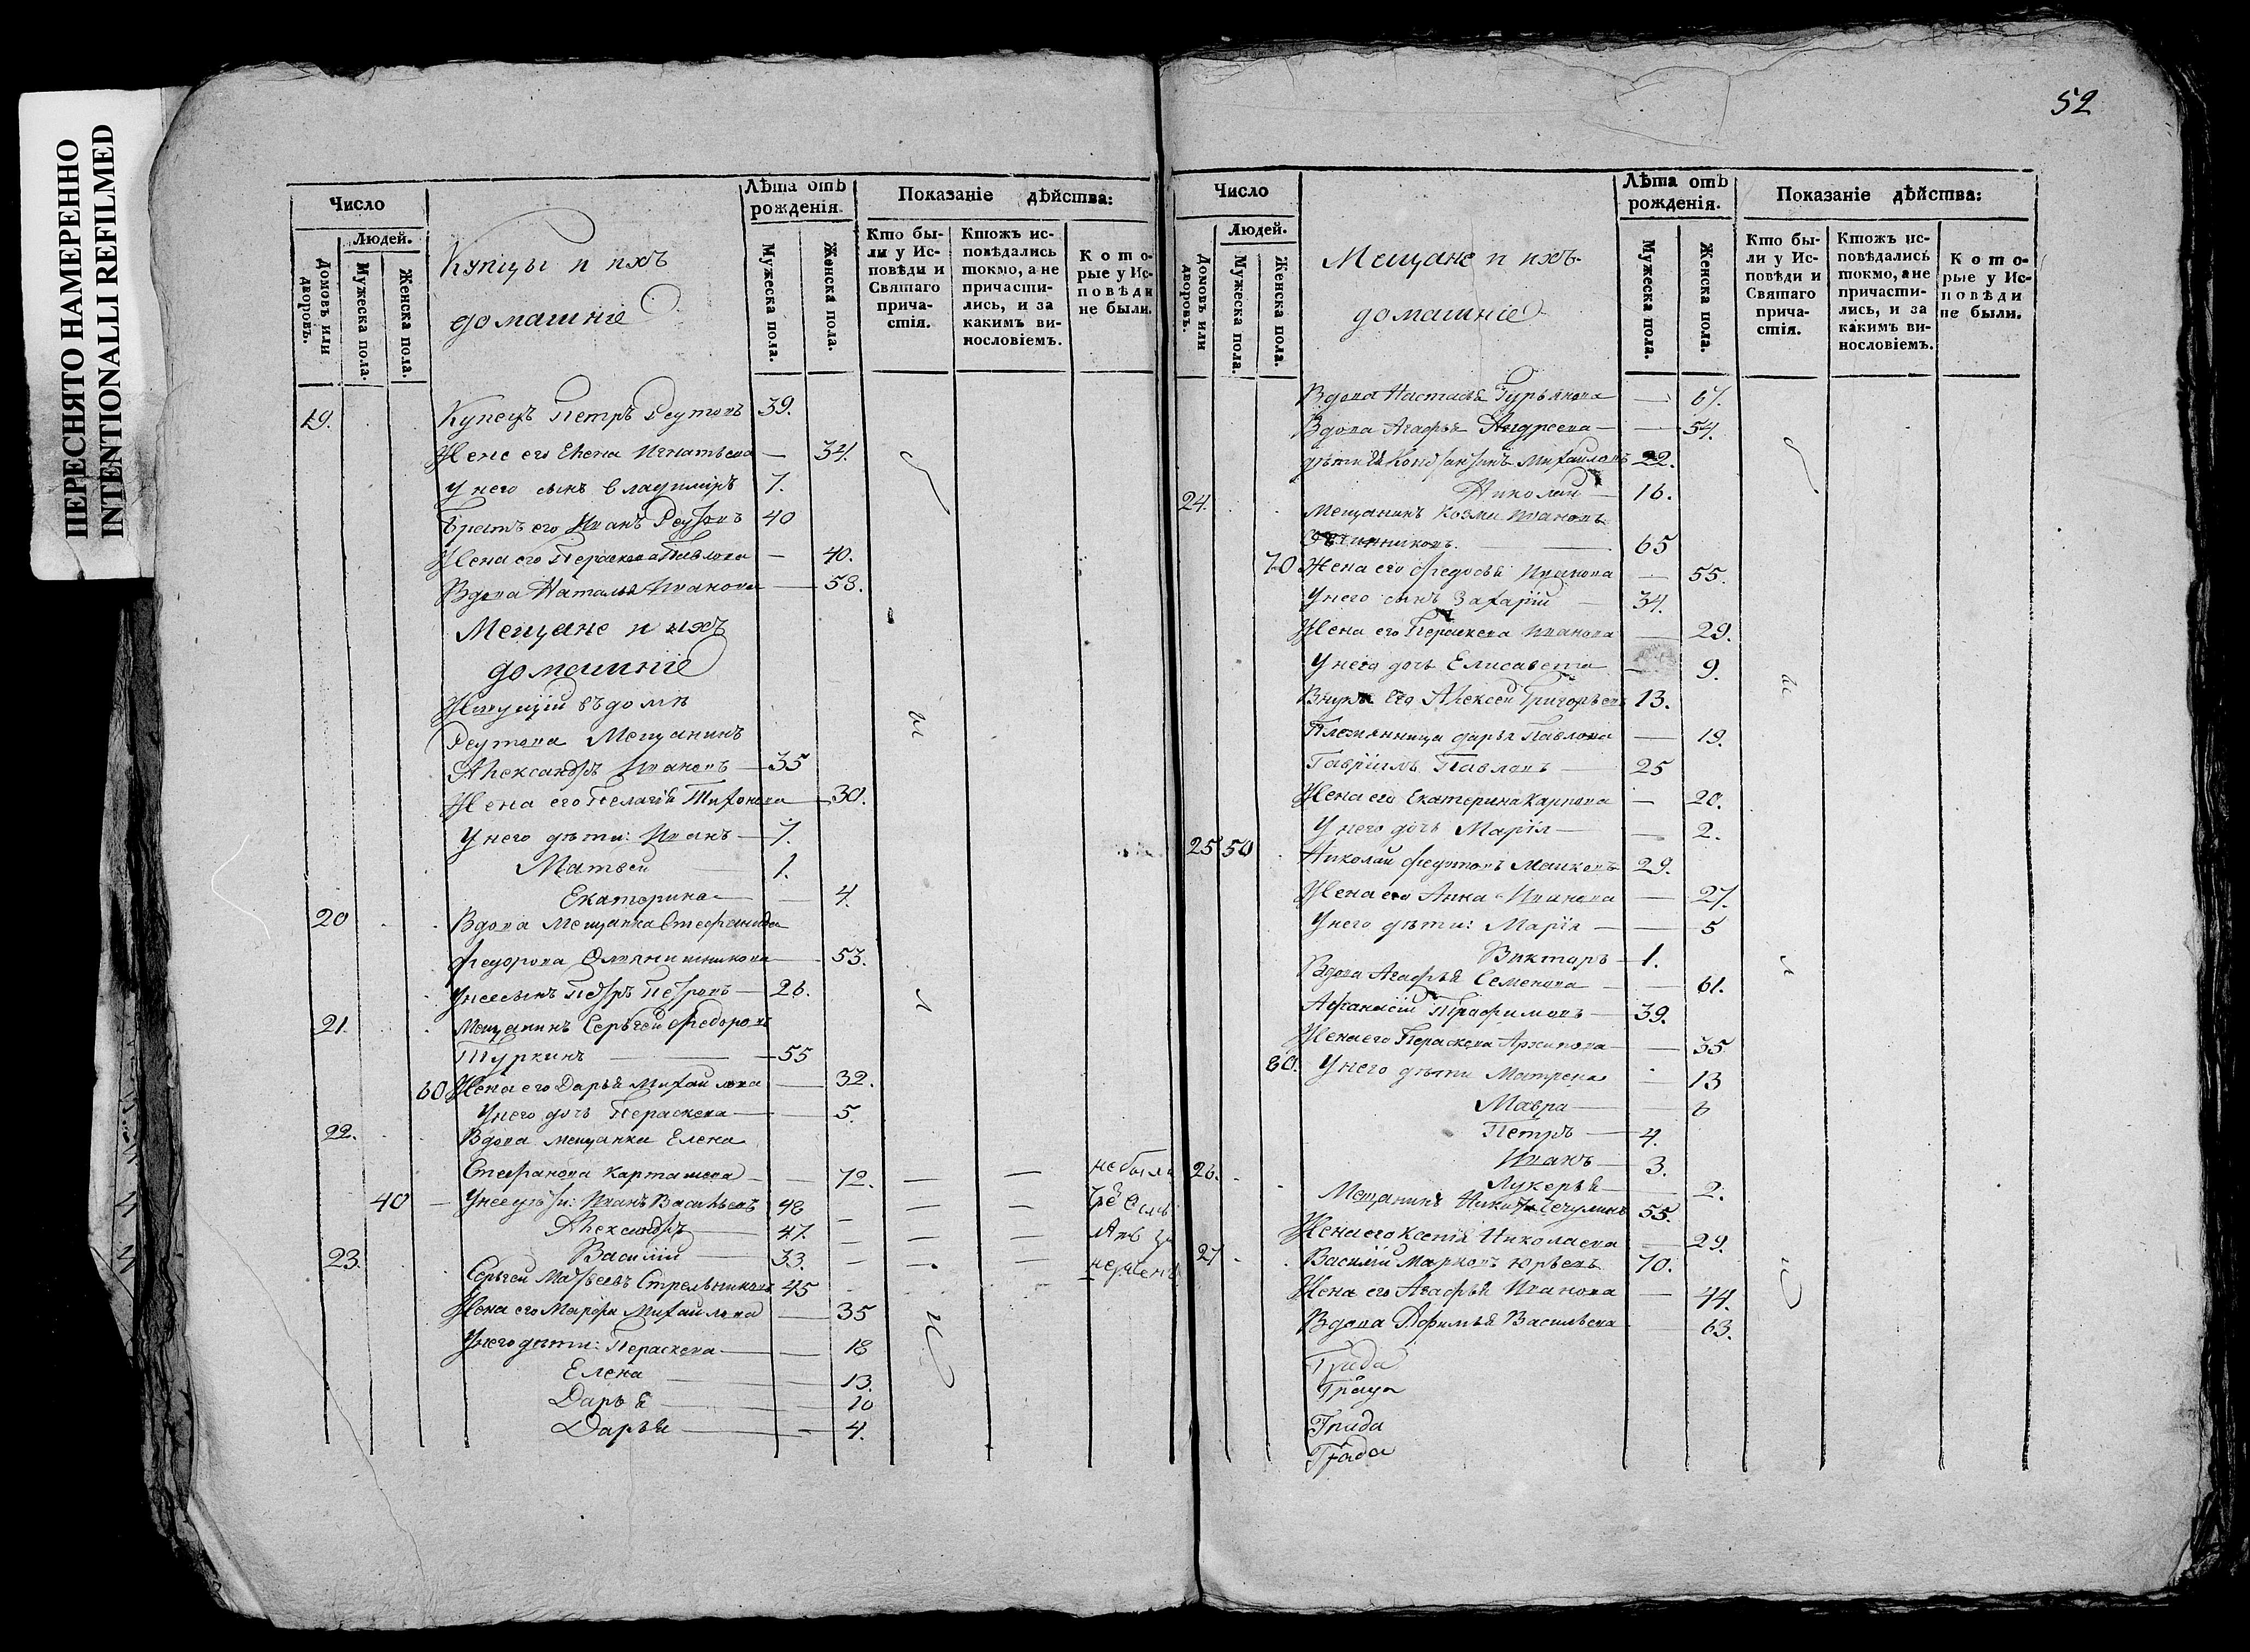 ПЕРЕСНЯТО НАМЕРЕННО
INTENTIONALLI REFILMED
Число
Людей.
Домовъ или дворовъ.
Мужеска пола.
Женска пола.
Купцы и ихъ
домашніе
Лѣта отъ рожденія.
Мужеска пола.
Женска пола.
Показаніе дѣйства:
Кто были у Исповѣди и Святаго причастія.
Ктожъ исповѣдались токмо, а не причастились, и за какимъ винословіемъ.
Которые у Исповѣди не были.
19. Купецъ Петръ Реутовъ 39.
Жена его Елена Игнатьева — 34.
У него сынъ Владимiръ 7.
Братъ его Иванъ Реутовъ 40
Жена его Параскева Павлова — 40.
Вдова Наталья Иванова — 58.
Мещане и ихъ
домашніе
Живущій въ домѣ
Реутова Мещанинъ
Александръ Ивановъ — 35
Жена его Пелагія Тихонова — 30.
У него дѣти: Иванъ — 7.
Матвей — 1.
Екатерина — 4.
20 Вдова Мещанка Стефанида
Федорова — 53.
У нее сынъ Петръ Петровъ — 26.
21. Мещанинъ Сергей Федоровъ
Туркинъ — 55
60 Жена его Дарья Михайлова — 32.
У него дочь Пераскева — 5.
22. Вдова мещанка Елена
Стефанова Карташева — 72. — — не была
40 — У нее дѣти: Иванъ Васильевъ 48 — — —
Александръ — 47. — — —
Василій — 33. — — —
23. Сергей Матвеевъ Стрельниковъ 45
Жена его Марфа Михайлова — 35
У него дѣти: Пераскева — 18
Елена — 13.
Дарья — 10
Дарья — 4.
52
Число
Людей.
Домовъ или дворовъ.
Мужеска пола.
Женска пола.
Мещане и ихъ
домашніе
Лѣта отъ рожденія.
Мужеска пола.
Женска пола.
Показаніе дѣйства:
Кто были у Исповѣди и Святаго причастія.
Ктожъ исповѣдались токмо, а не причастились, и за какимъ винословіемъ.
Которые у Исповѣди не были.
Вдова Настасья Гурьянова — 67.
Вдова Агафья Андреева — 54.
Константинъ Михайловъ 22.
Николай — 16.
24. Мещанинъ Козма Ивановъ
— 65
70 Жена его Федосья Иванова — 55.
У него сынъ Захарій — 34.
Жена его Пераскева Иванова — 29.
У него дочь Елисавета — 9.
Внукъ Его Алексей Григорьевъ 13.
Племянница Дарья Павлова — 19.
Гавріилъ Павловъ — 25
Жена его Екатерина Карпова — 20.
У него дочь Марія — 2.
25 50 Николай Федотовъ 29.
Жена его Анна Иванова — 27.
У него дѣти: Марія — 5
Викторъ — 1.
Вдова Агафья Семенова — 61.
Афанасій Трофимовъ — 39.
Жена его Пераскева Архипова — 35
80. У него дѣти Матрена — 13
Мавра — 6
Петръ — 4.
Иванъ — 3.
Лукерья — 2.
26. Мещанинъ Никита 55.
Жена его Ксенія Николаева — 29.
27 Василій Марковъ Юрьевъ 70.
Жена его Агафья Иванова — 44.
Вдова Афимья Васильева — 63.